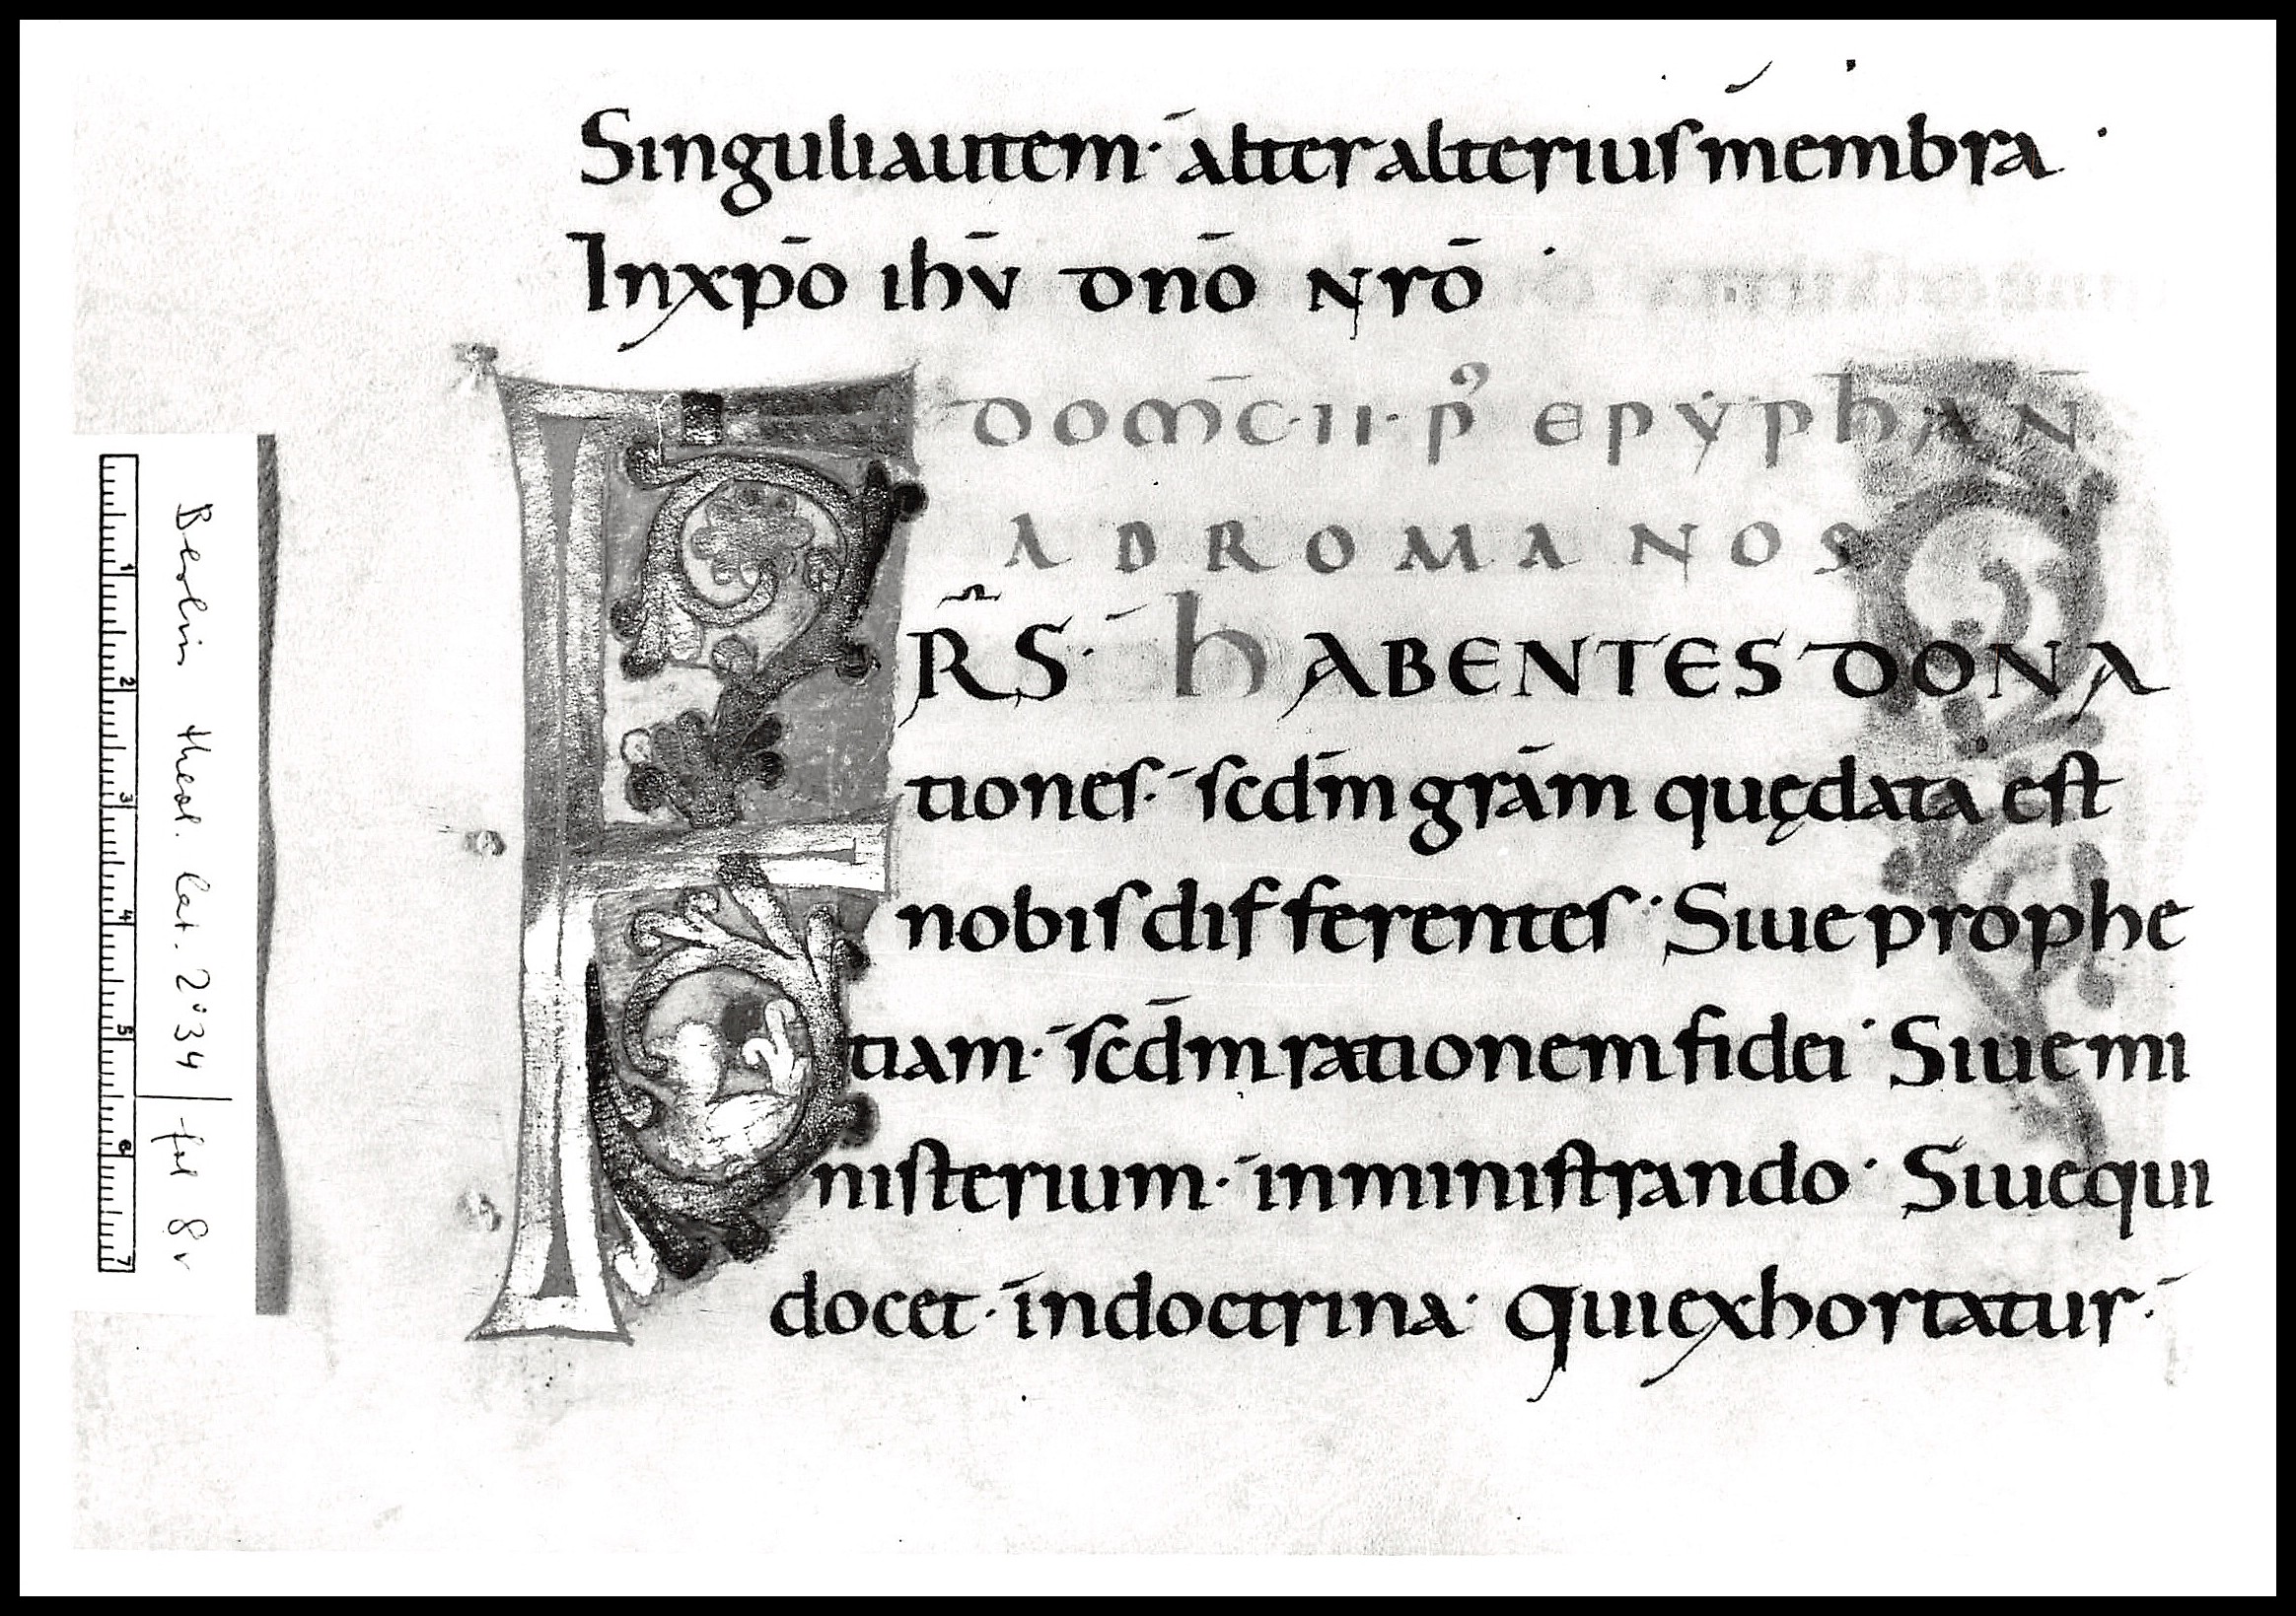 Singuli autem· alter alterius membra·
In xp̄o ihū dn̄o nr̄o·
DOM̄C·II·P᾿ EPẎPHAN̄
AD ROMANOS
FR̄S· HABENTES DONA
tiones· scd̄m grām quę data est
nobis differentes· Siue prophe
tiam· scd̄m rationem fidei· Siue mi
nisterium· in ministrando· Siue qui
docet· in doctrina· Qui exhortatur·
Berlin theol. lat. 2° 34 | fol 8v
1 2 3 4 5 6 7